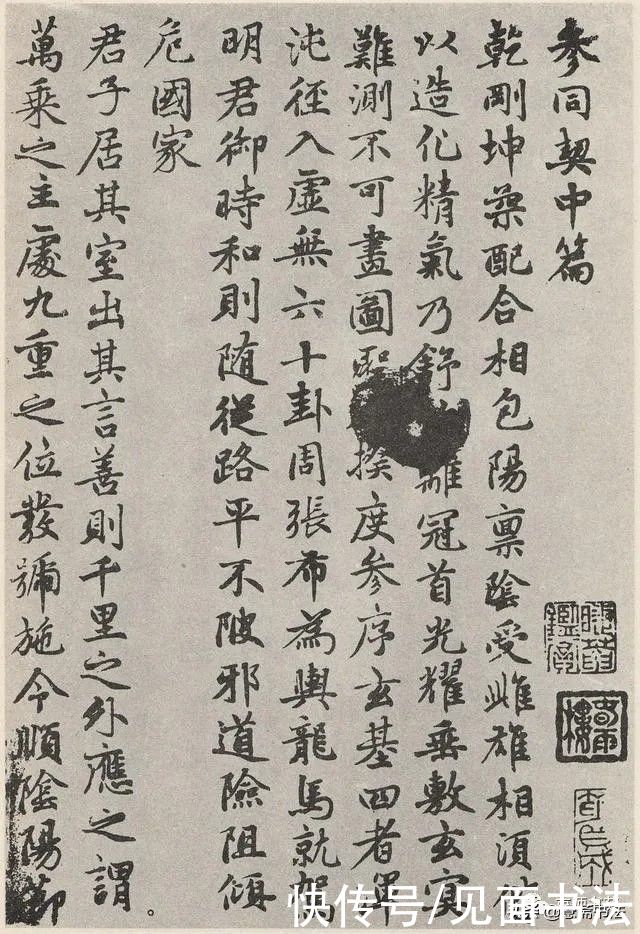 参同契中篇
乾剛坤柔配合相包陽禀陰受雌雄相須
以造化精氣乃舒離冠首光耀垂敷玄冥
難測不可畫圖聖揆度参序玄基四者混
沌徑入虛無六十卦周張布為輿龍馬就駕
明君御時和則随從路平不陂邪道險阻傾
危國家
君子居其室出其言善則千里之外應之謂
萬乗之主處九重之位發號施令順陰陽節
快传号/见面书法